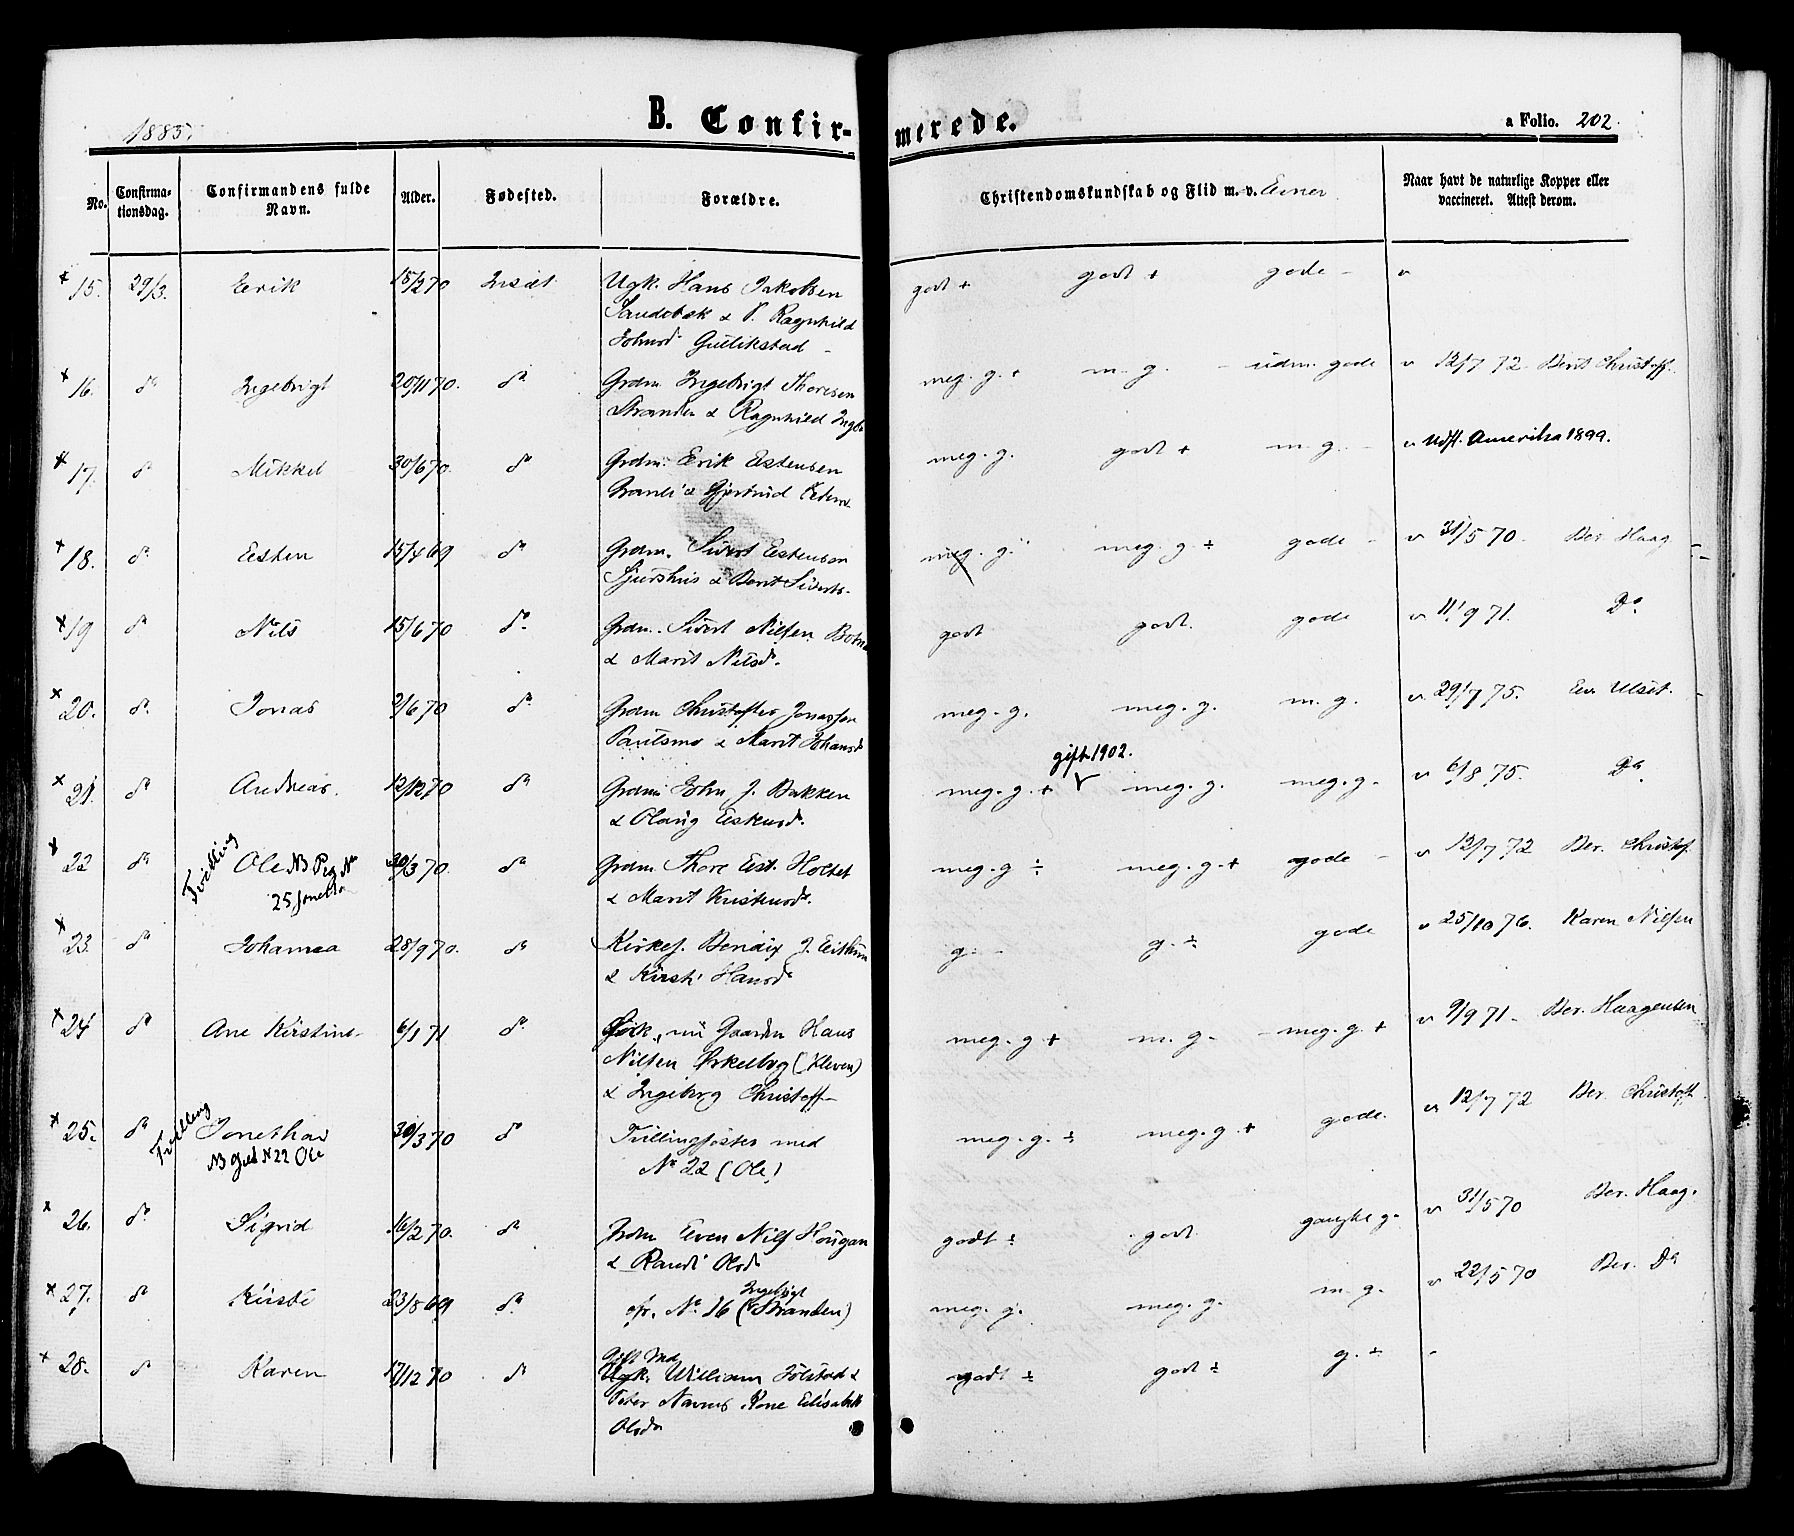 1885.
B. Confir-
merede.
a Folio. 202
No. Confirma-tionsdag. Confirmandens fulde Navn. Alder. Fødested. Forældre. Christendomskundskab og Flid m. v. Evner Naar havt de naturlige Kopper eller vaccineret. Attest derom.
+ 15. 29/3. Eerik 18/2 70 Insæt Ugk. Hans Jakobsen godt + godt + gode - v
& P. Ragnhild
Johnsd Gullikstad -
+ 16. do Ingebrigt 20/11 70. do Grdm. Ingebrigt Thoresen meg. g. + m. g. - udm. gode v 12/7 72 Berit Christoff.
Stranden & Ragnhild Ingb
+ 17. do Mikkel 30/6 70. do Grdm. Eerik Eestensen meg. g. godt + m. g. - v Udfl. Amerika 1899.
& Gjertrud Pedersd
+ 18. do Eesten 15/4 69 do Grdm. Sivert Eestensen meg. g. meg. g ÷ gode - v 31/5 70. Ber. Haag
Sjurshus & Berit Siverts.
+ 19 do Nils 15/6 70 do Grdm. Sivert Nilsen Botn godt godt. gode v 11/9 71. Do
& Marit Nilsd.
+ 20. do Jonas 2/6 70 do Grdm Christoffer Jonassen meg. g. meg. g. m. g. v 29/7 75. Een Ulset.
& Marit Johansd
gift 1902.
+ 21. do Andreas. 12/12 70 do Grdm John J. Bakken meg. g. + meg. g. meg. g. v 6/8 75. Do
& Olaug Estensd.
+ 22 do Tvilling Ole NB Pig No 30/3 70. do Grdm. Thore Est. Holtet meg. g ÷ meg. g. + gode - v 12/7 72 Ber. Christof.
25 Jonetta & Marit Kristensd.
+ 23. do Johanna 28/9 70. do Kirkes. Bendix J. g. - g. ÷ gode v 25/10 76. Karen Nilsen
& Kirsti Hansd
+ 24 do Ane Kirstine 6/1 71 do nu Gaardm Hans meg. g + m. g - meg. g + v 9/9 71 - Ber. Haagensen
Nilsen (Kleven)
& Ingeborg Christoff -
+ 25. do Tvilling Jonetha 30/3 70 do Tvillingsøster med meg. g. ÷ meg. g. + gode. v 12/7 72 Ber. Christoff
NB N 22 Ole No 22 (Ole)
+ 26. do Sigrid 16/2 70. do Grdm Even Nils Hougan godt ÷ godt ganske g. v 31/5 70 Ber. Haag.
& Randi Olsd
+ 27. do Kirsti 23/8 69 do cfr. No 16 (Ingebrigt Stranden) meg. g. meg. g. m. g. v 22/5 70 Ber. Do
Gift Md
+ 28. do Karen 17/12 70 do Ugk. William & godt ÷ godt ÷ g. ÷ -
Peter Kone Elisabeth
Olsd